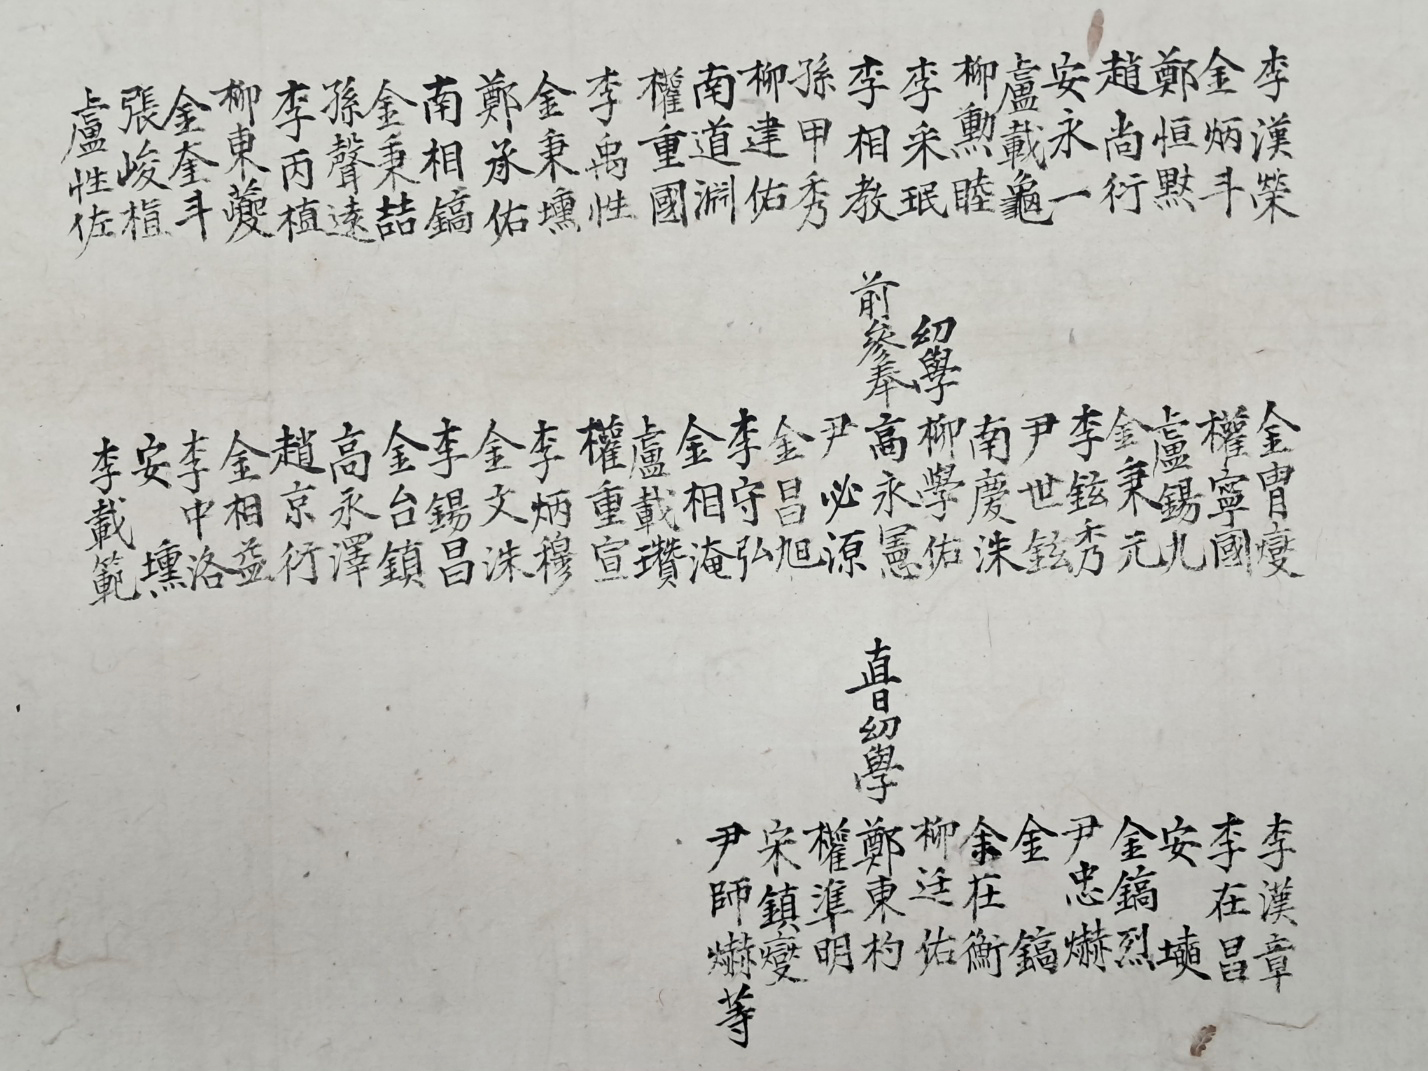 李漢榮
金炳斗
鄭恒黙
趙尚衍
安永一
盧載龜
柳勳睦
李采珉
李相教
孫甲秀
柳建佑
南道淵
權重國
李禹性
金秉壎
鄭承佑
南相鎬
金秉喆
孫聲遠
李丙植
柳東夔
金奎斗
張峻植
盧性佐
金胄燮
權寧國
盧錫九
金秉元
李鉉秀
尹世鉉
南慶洙
幼學
柳學佑
前參奉
高永憲
尹必源
金昌旭
李守弘
金相淹
盧載瓚
權重宣
李炳穆
金文洙
李錫昌
金台鎮
高永澤
趙京衍
金相益
李中洛
安壎
李載範
李漢章
李在昌
安㙔
金鎬烈
尹忠爀
金鎬
余在衡
柳廷佑
直日幼學
鄭東杓
權準明
宋鎮燮
尹師爀等